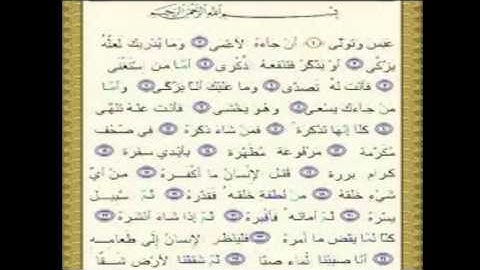 بسم الله الرحمن الرحيم
عبس وتولى ١ أن جاءه الأعمى ٢ وما يدريك لعله
يزكى ٣ أو يذكر فتنفعه ذكرى ٤ أما من استغنى
٥ فأنت له تصدى ٦ وما عليك ألا يزكى ٧ وأما
من جاءك يسعى ٨ وهو يخشى ٩ فأنت عنه تلهى
١٠ كلا إنها تذكرة ١١ فمن شاء ذكره ١٢ في صحف
مكرمة ١٣ مرفوعة مطهرة ١٤ بأيدي سفرة ١٥
كرام بررة ١٦ قتل الإنسان ما أكفره ١٧ من أي
شيء خلقه ١٨ من نطفة خلقه فقدره ١٩ ثم السبيل
يسره ٢٠ ثم أماته فأقبره ٢١ ثم إذا شاء أنشره ٢٢
كلا لما يقض ما أمره ٢٣ فلينظر الإنسان إلى طعامه
٢٤ أنا صببنا الماء صبا ٢٥ ثم شققنا الأرض شقا